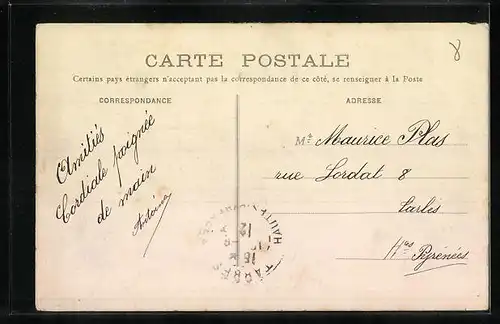 CARTE POSTALE
8
Certains pays étrangers n'acceptant pas la correspondance de ce côté, se renseigner à la Poste
CORRESPONDANCE
ADRESSE
Amitiés
Cordiale poignée
de main
Antoine
Mr Maurice Plas
rue Lordat 8
Tarbes
Htes Pyrénées
TARBES
HAUTES